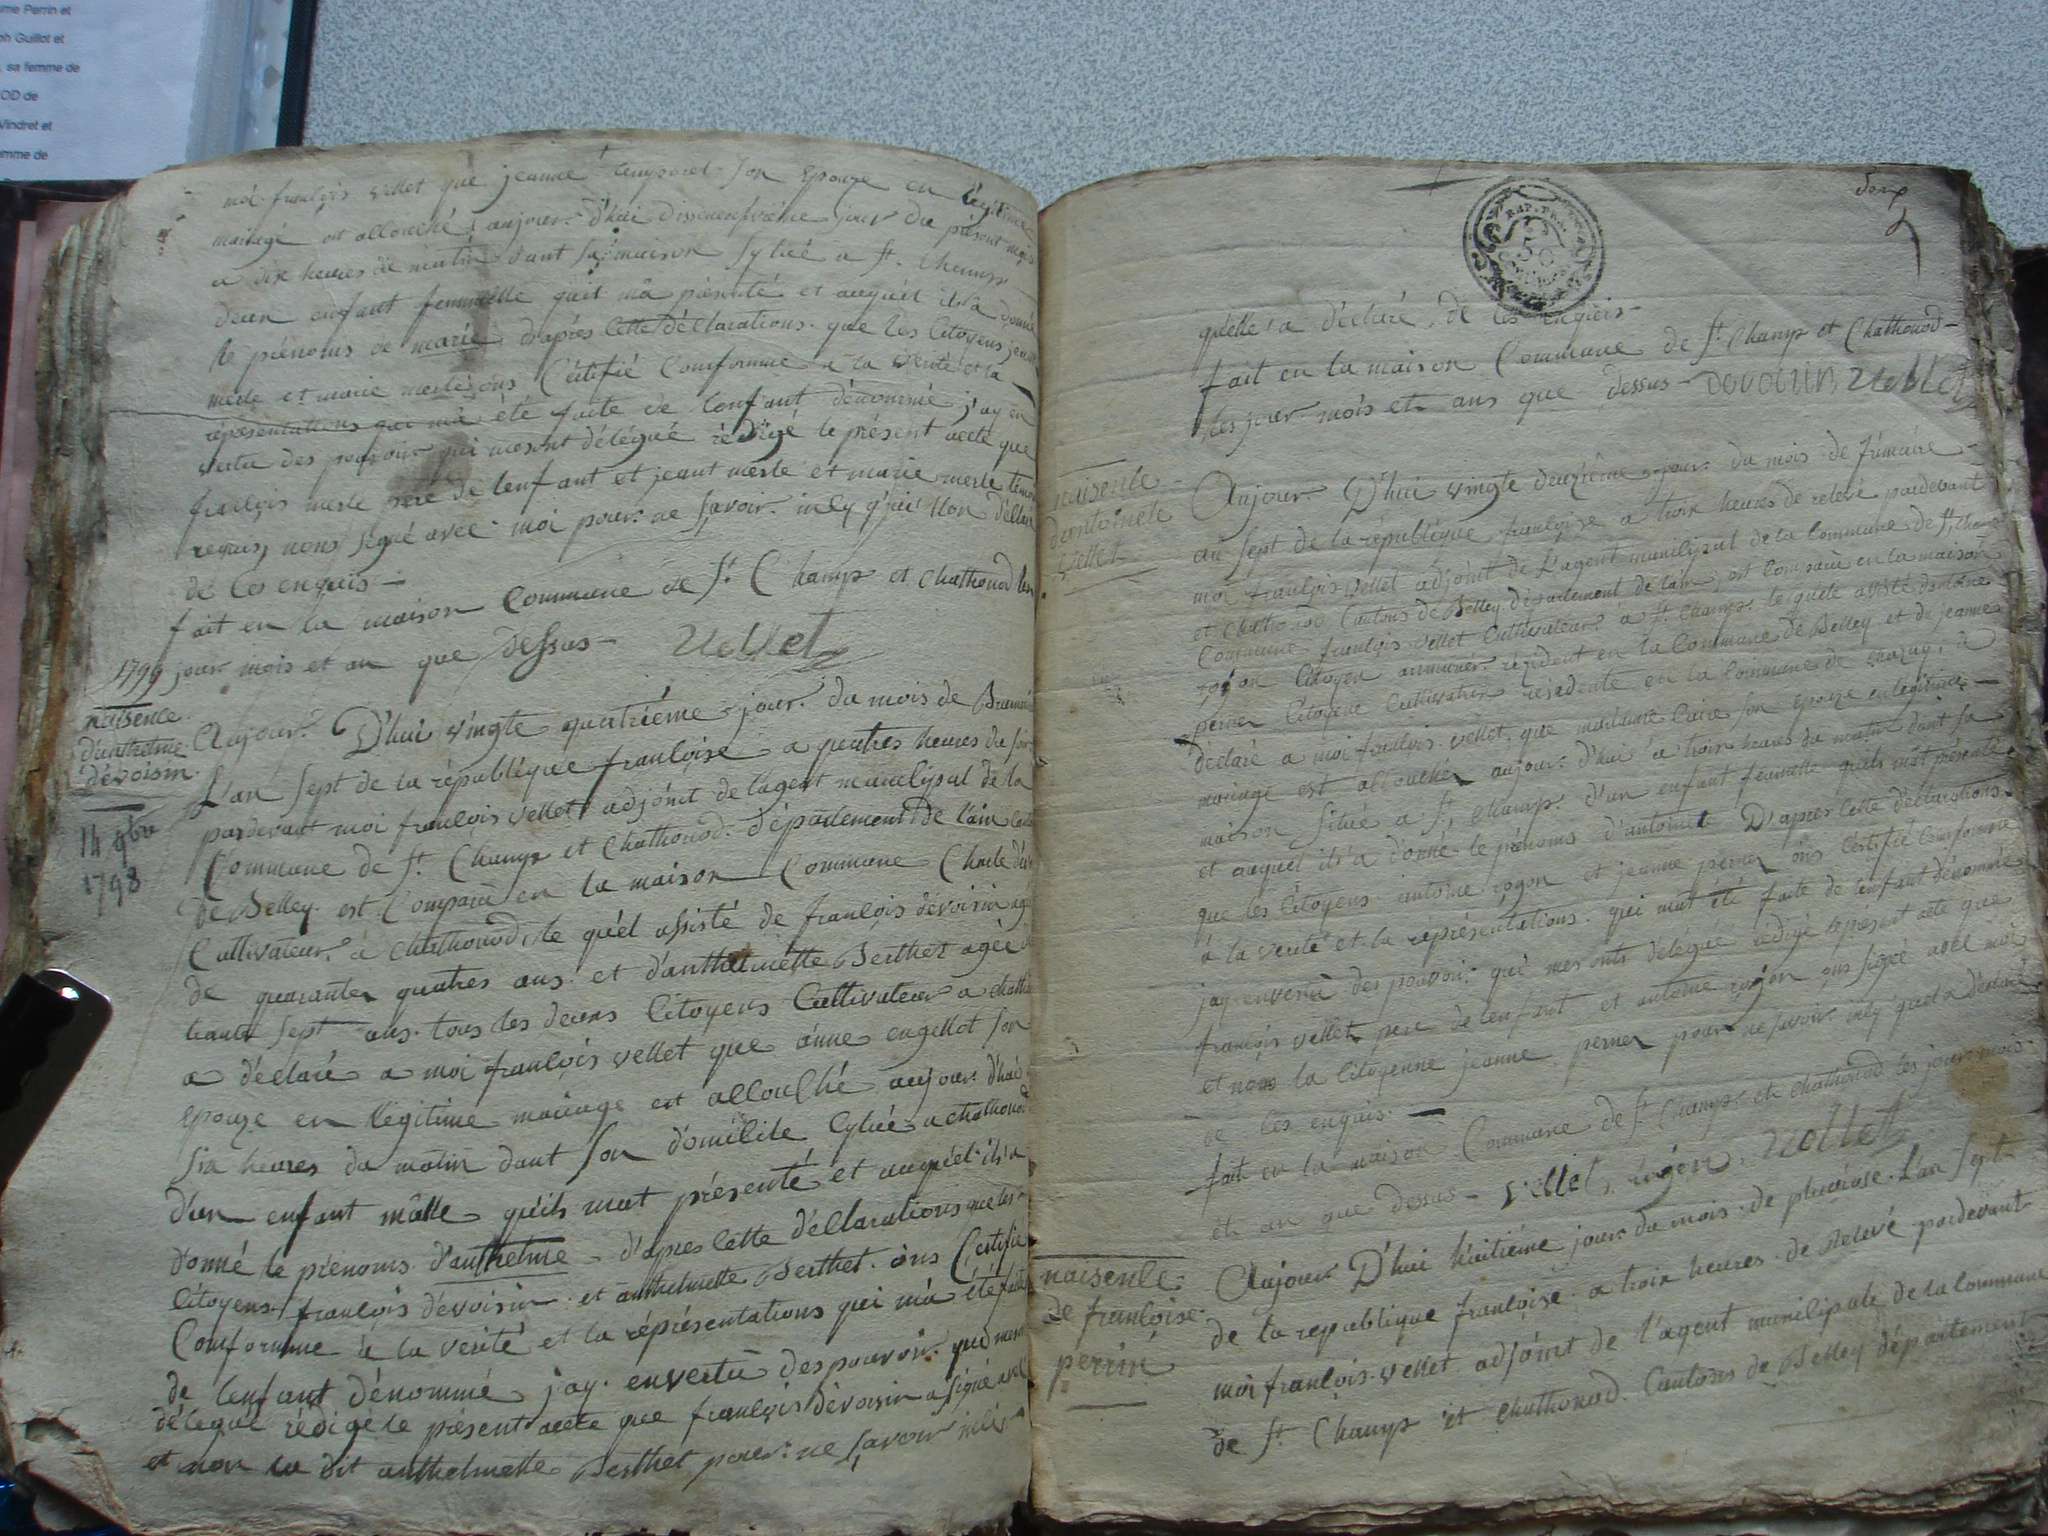 me Perrin et
ph Guillot et
, sa femme de
OD de
Vindret et
emme de
moi françois vellet que jeanne son epouze en légitime
mariagé est allouché aujour d'hui jour du présent mois
a dix heures de matin dant sa maison sytué a St. Champ
deun enfant femmelle quil mâ présenté et auquel il a donné
le prénoms de marie, d'après cette déclarations que les Citoyens
merle et marie merle ons Certifié Conformme a la verité et la
représentations qui mâ été faite de lenfant dénommé j'ay en
vertu des pouvoir qui mesont délégué rédigé le présent acte que
françois merle pere de lenfant et jeant merle et marie merle
requis, nons signé avec moi pour ne savoir
de ces enquis -
fait en la maison Commune de St Champ et Chathonod les
jour mois et an que dessus - vellet
1799
naisence
d'anthelme
dévoisin
14 9bre
1798
Aujour D'hui vingte quatriéme jour du mois de Brumaire
L'an sept de la république françoise a quatres heures du soir
pardevant moi françois vellet adjoint de lagent municipal de la
Commune de St. Champ et Chathonod département de l'ain
de Belley est Comparu en la maison Commune Charle
Cultivateur à Chathonod, le quél assisté de françois dévoisin agé
de quarantes quatres ans et d'anthelmette Berthet agée
trante sept ans tous les deuxs Citoyens Cultivateur a
a déclaré a moi françois vellet que anne engellot son
Epouze en légitime mariage est allouché aujour d'hui
six heures du matin dant son domicile sytué a chathonod
d'un enfant mâlle quils mat présenté et auquel il a
donné le prénoms d'anthelme d'apres cette déclarations que les
Citoyens françois dévoisin et anthelmette Berthet ons Certifié
Conformme à la verité et la représentations qui mâ été
de lenfant dénommé jay envertu des pouvoir
délégué rédigé le présent acte que françois dévoisin a signé avec
et non la dit anthelmette Berthet pour ne savoir
quelle a déclaré de ces enquis -
fait en la maison Commune de St Champ et Chathonod -
les jour mois et ans que dessus - devoisin vellet
naisence
dantoinete
vellet
Aujour D'hui vingte deuxiéme jour du mois de frimaire -
an sept de la république françoise a trois heures de relevé pardevant
moi françois vellet adjoint de l'agent municipal de la Commune de St. Champ
et Chathonod Cantons de Belley département de lain, est Comparu en la maison
Commune françois vellet Cultivateur à St. Champ lequele assisté
Citoyen résident en la Commune de Belley et de jeanne
perner Citoyene Cultivatrice résidente en la Commune de
déclaré a moi françois vellet, que son epouze enlégitime -
mariage est allouchée aujour d'hui a trois heures du matin dant sa
maison situé a St Champ d'un enfant femmelle quils mat présenté
et auquel il a donné le prénoms d'antoinete D'apres cette déclarations
que les Citoyens antoine rogon et jeanne perner ons certifié Conformme
à la verité et la représentations qui mat été faite de lenfant dénommé
jay envertu des pouvoir qui mes onts délégué rédigé le présent acte que
françois vellet pere de lenfant et antoine rogon ons signé avec moi
et nons la Citoyenne jeanne perner pour ne savoir
de ces enquis -
fait en la maison Commune de St Champ et chathonod les jour mois
et an que dessus - vellet, vellet
naisence
de françoise
perrin
Aujour D'hui huitiéme jour du mois de pluviose L'an sept
de la republique françoise a trois heures de relevé pardevant
moi françois vellet adjoint de l'agent municipale de la Commune
de St Champ et Chathonod Cantons de Belley département